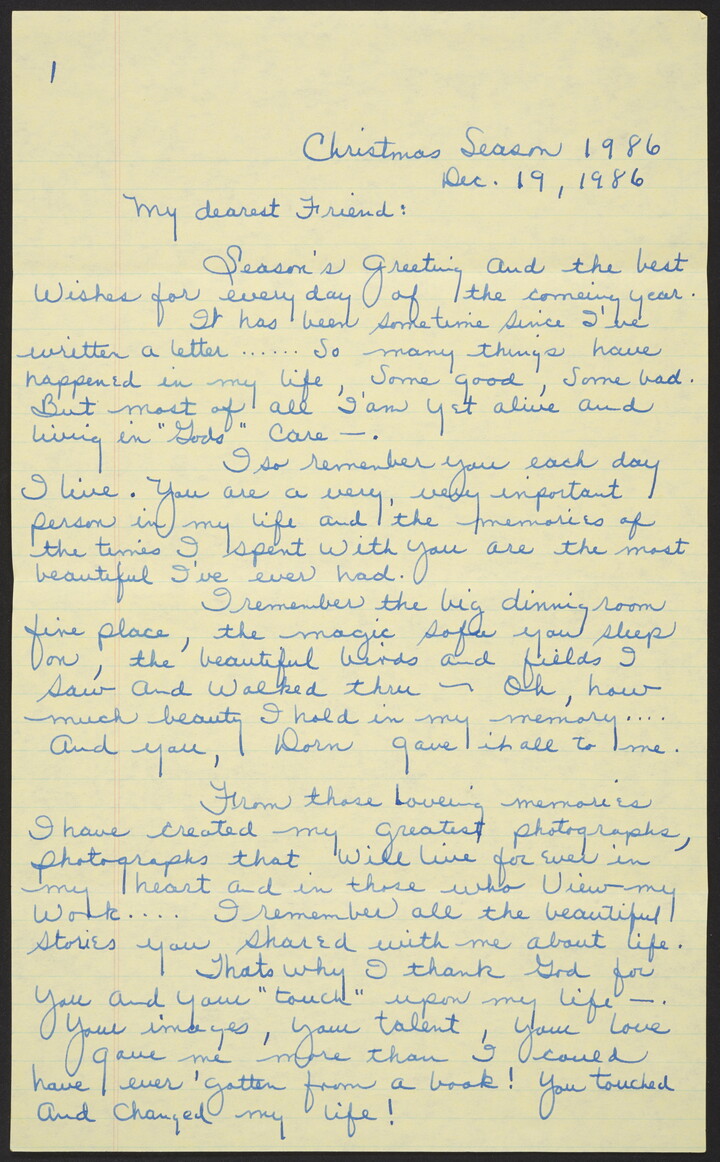 1
Christmas Season 1986
Dec. 19, 1986
My dearest Friend:
Season's Greeting and the best
Wishes for every day of the comeing year.
It has been sometime since I've
written a letter ...... So many things have
happened in my life, Some good, Some bad.
But most of all I'am yet alive and
living in "Gods" Care —.
I so remember you each day
I live. You are a very, very inportant
person in my life and the memories of
the times I spent with you are the most
beautiful I've ever had.
I remember the big dinnig room
fire place, the magic sofa you sleep
on, the beautiful birds and fields I
saw and walked thru ~ Oh, how
much beauty I hold in my memory....
And you, Dorn gave it all to me.
From those loveing memories
I have created my greatest photographs,
photographs that will live for ever in
my heart and in those who View my
Work.... I remember all the beautiful
stories you shared with me about life.
Thats why I thank God for
you and your "touch" upon my life —.
Your images, your talent, your love
gave me more than I could
have ever gotten from a book! You touched
And changed my life!